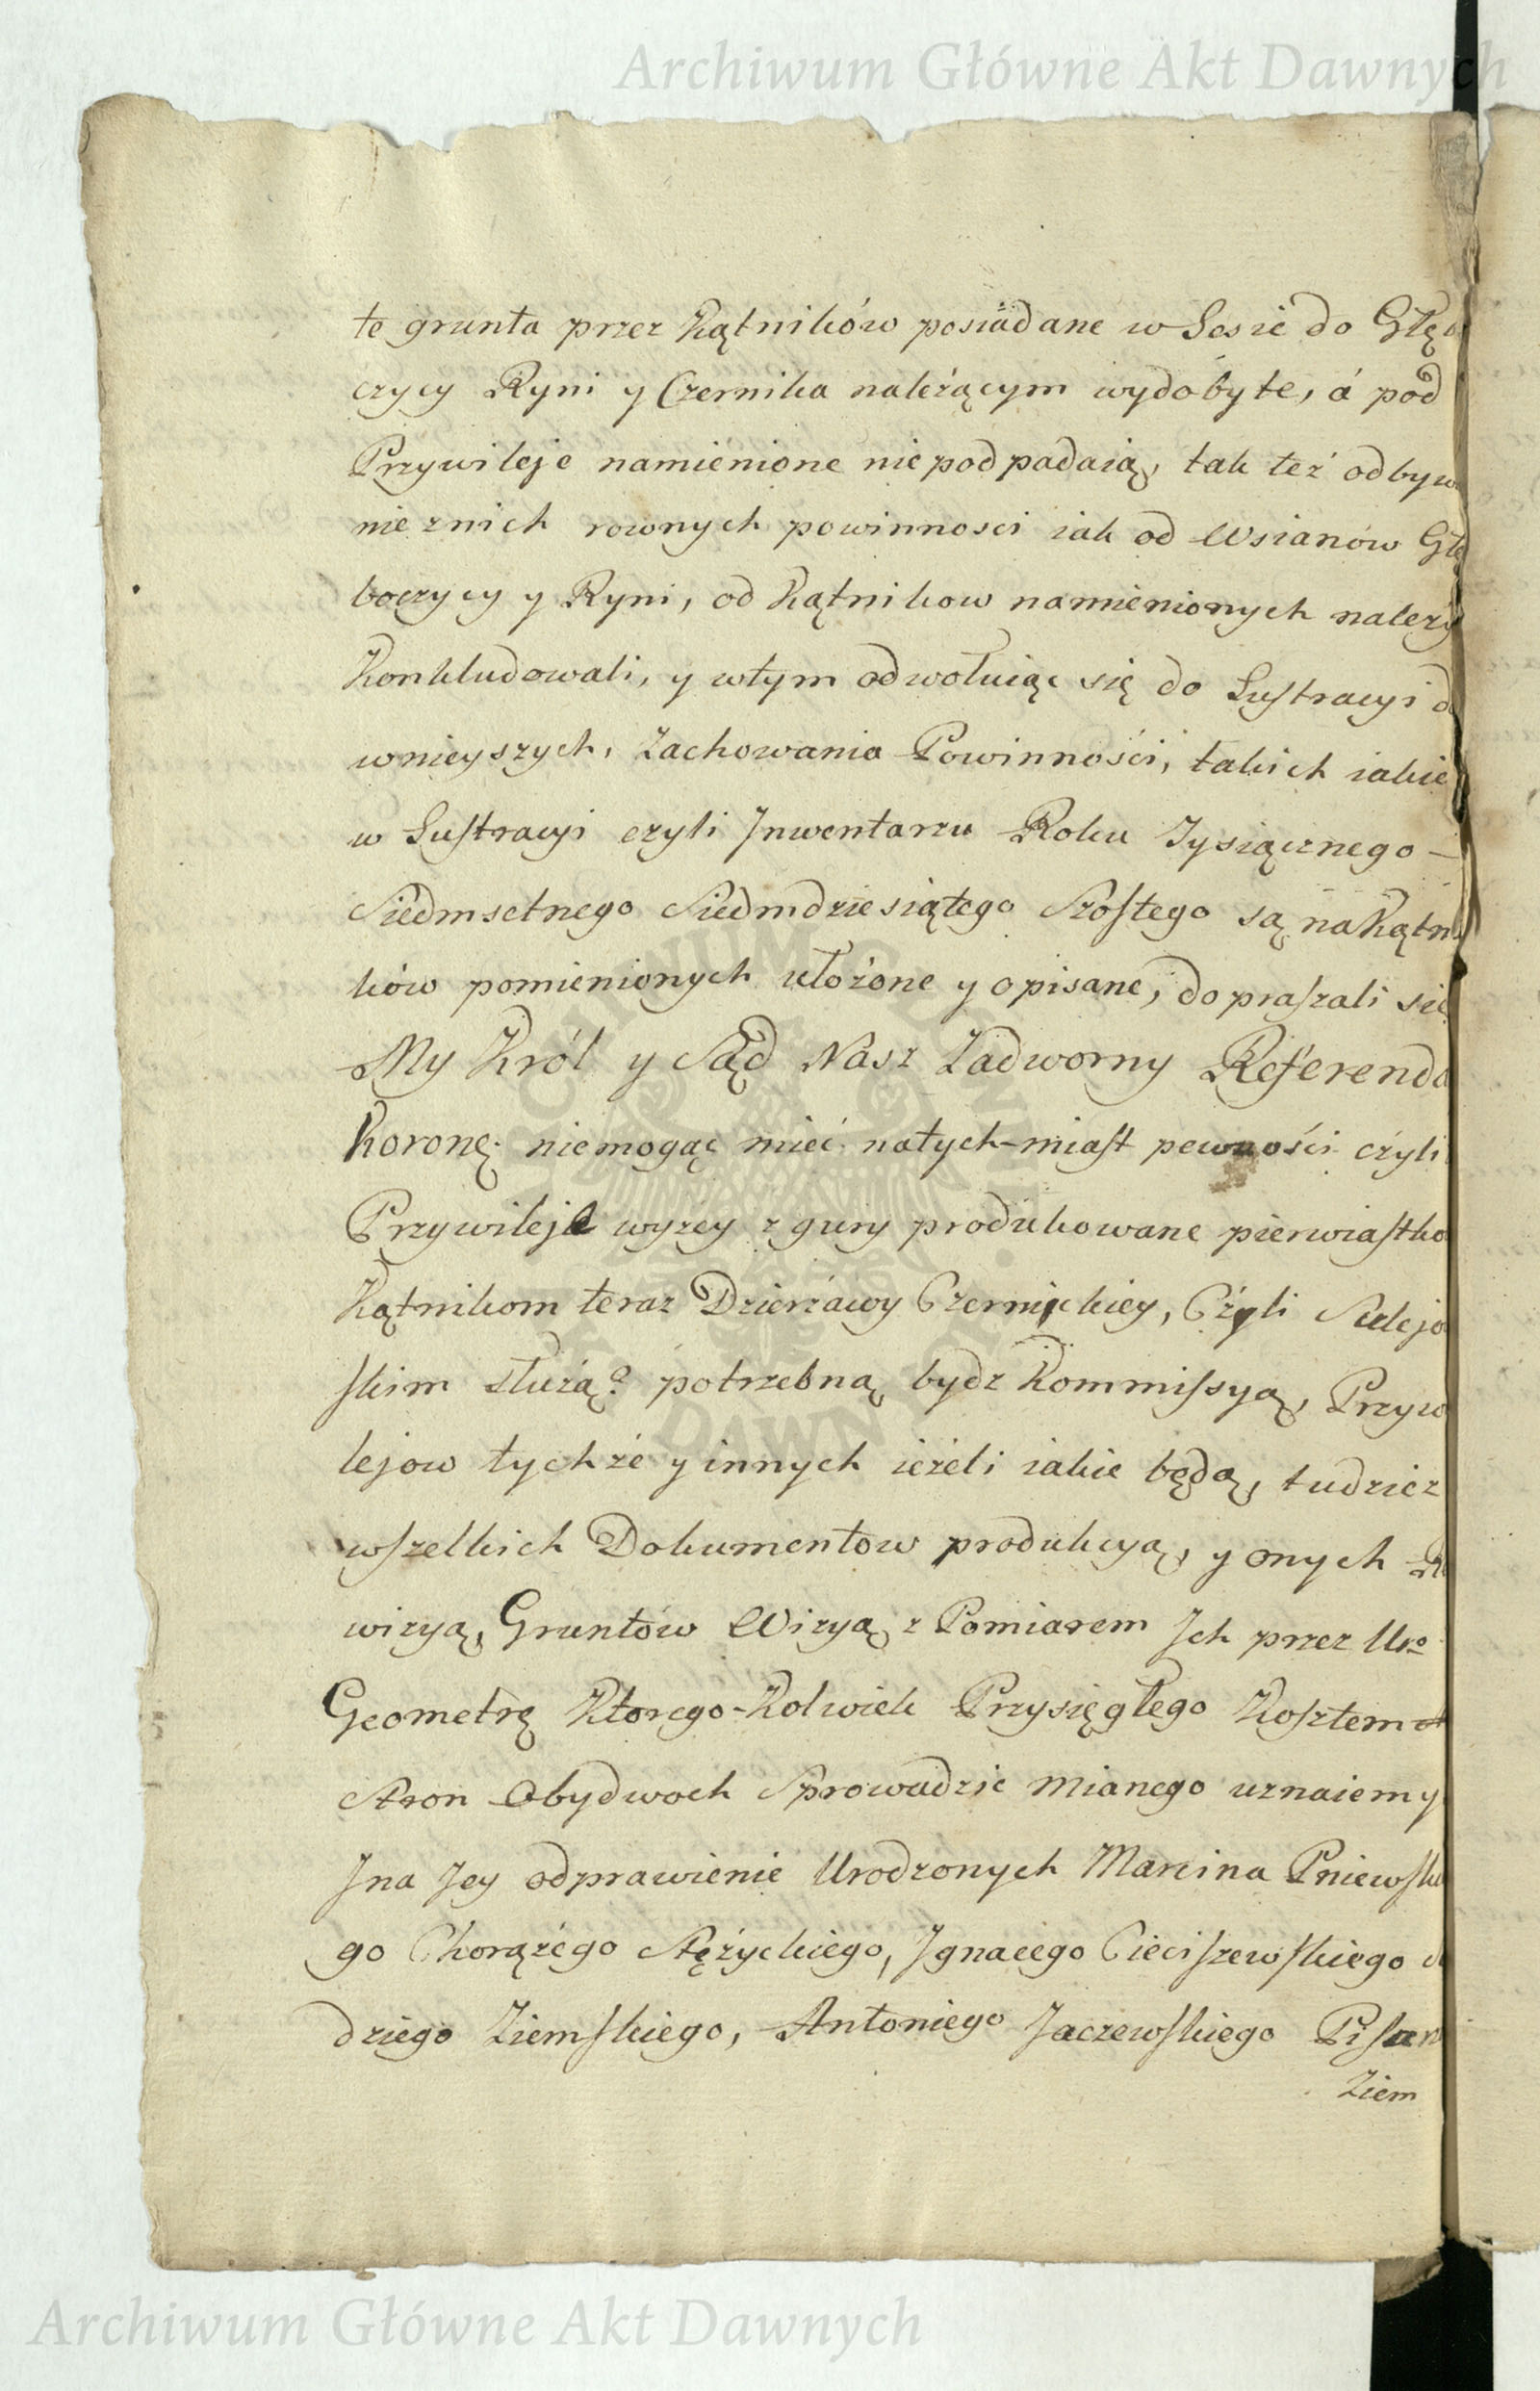 Archiwum Główne Akt Dawnych
te grunta przez Kątników posiadane w Lesie do Głęb
czycy Ryni y Czernika należącym wydobyte, á pod
Przywileje namienione nie podpadaią, tak też odbywa
nie z nich rownych powinnosci iak od Wsianów Głę
boczycy y Ryni, od Kątnikow namienionych należy
Konkludowali, y w tym odwołuiąc się do Lustracyi da
wnieyszych, Zachowania Powinności, takich iakie
w Lustracyi czyli Jnwentarzu Roku Tysiącznego —
Siedmsetnego Siedmdziesiątego Szostego są na Kątni
ków pomienionych ułożone y opisane, dopraszali się
My Król y Sąd Nasz Zadworny Referenda
Koronę. niemogąc mieć natych-miast pewności czyli
Przywileje wyzey z gury produkowane pierwiastko
Kątnikom teraz Dzierżawy Czernickiey, Czyli Sulejo
skim służą? potrzebną bydz Kommissyą, Przywi
lejow tychże y innych ieżeli iakie będą, tudziez
wszelkich Dokumentow produkcyą, y onych Re
wizyą, Gruntów Wizyą z Pomiarem Jch przez Uro
Geometrę Ktorego-Kolwiek Przysięgłego Kosztem
Stron Obydwoch Sprowadzić mianego uznaiemy
Jna Jey odprawienie Urodzonych Marcina Pniewske
go Chorążego Stężyckiego, Jgnacego Cieciszewskiego Sę
dziego Ziemskiego, Antoniego Jaczewskiego Pisarz
Ziem
ARCHIWUM GŁÓWNE AKT DAWNYCH
Archiwum Główne Akt Dawnych